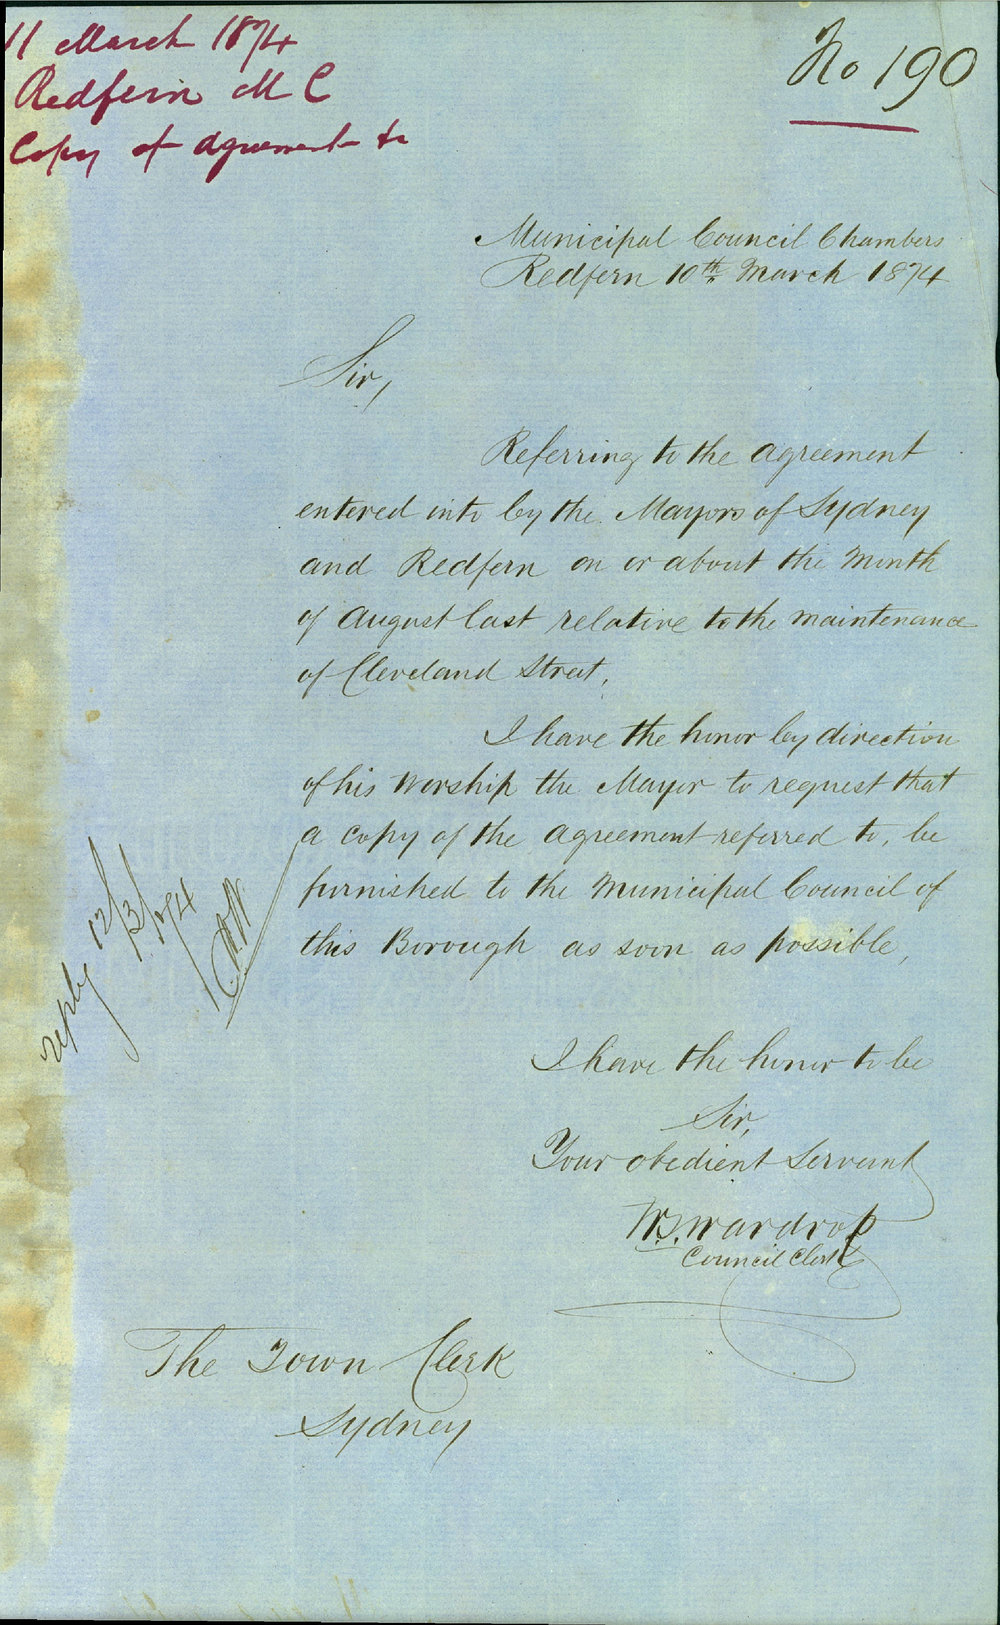 11 March 1874
Redfern M C
Copy of agreement &c
No 190
Municipal Council Chambers
Redfern 10th March 1874
Sir,
Referring to the agreement
entered into by the Mayors of Sydney
and Redfern on or about the Month
of August last relative to the maintenance
of Cleveland Street,
I have the honor by direction
of his Worship the Mayor to request that
a copy of the agreement referred to, be
furnished to the Municipal Council of
this Borough as soon as possible,
reply 12/3/74
I have the honor to be
Sir,
Your obedient Servant
Wardrop
Council Clerk
The Town Clerk
Sydney